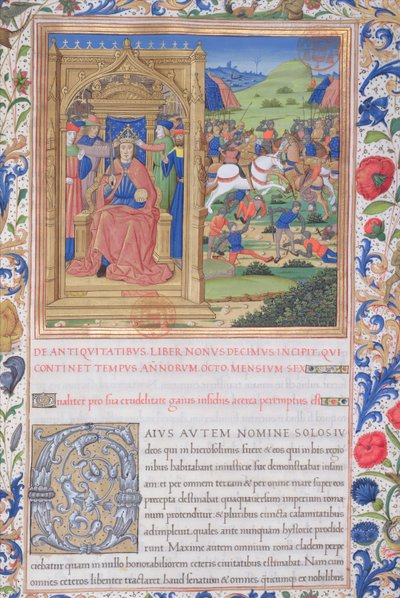 DE ANTIQVITATIBVS LIBER NONVS DECIMVS INCIPIT QVI
CONTINET TEMPVS ANNORVM OCTO MENSIVM SEX
Qualiter pro sua crudelitate gaius insidiis a cerea peremptus est
GAIVS AVTEM NOMINE SOLOS IV
deos qui in hierosolimis fuere & eos qui in his regio
nibus habitabant iniusticie sue demonstrabat infani
am: et per omnem terram & per omne mare super eos
percepta destinabat quaquauersum imperium roma
num protenditur: & pluribus cuncta calamitatibus
adimpleuit, quales ante nunquam hystorie prodide
runt. Maxime autem omnium roma cladem perpe
ciebatur quam in nullo honorabiliorem ceteris ciuitatibus estimabat. Nam cum
omnes ceteros libenter tractaret haud senatum & omnes quicunque ex nobilibus